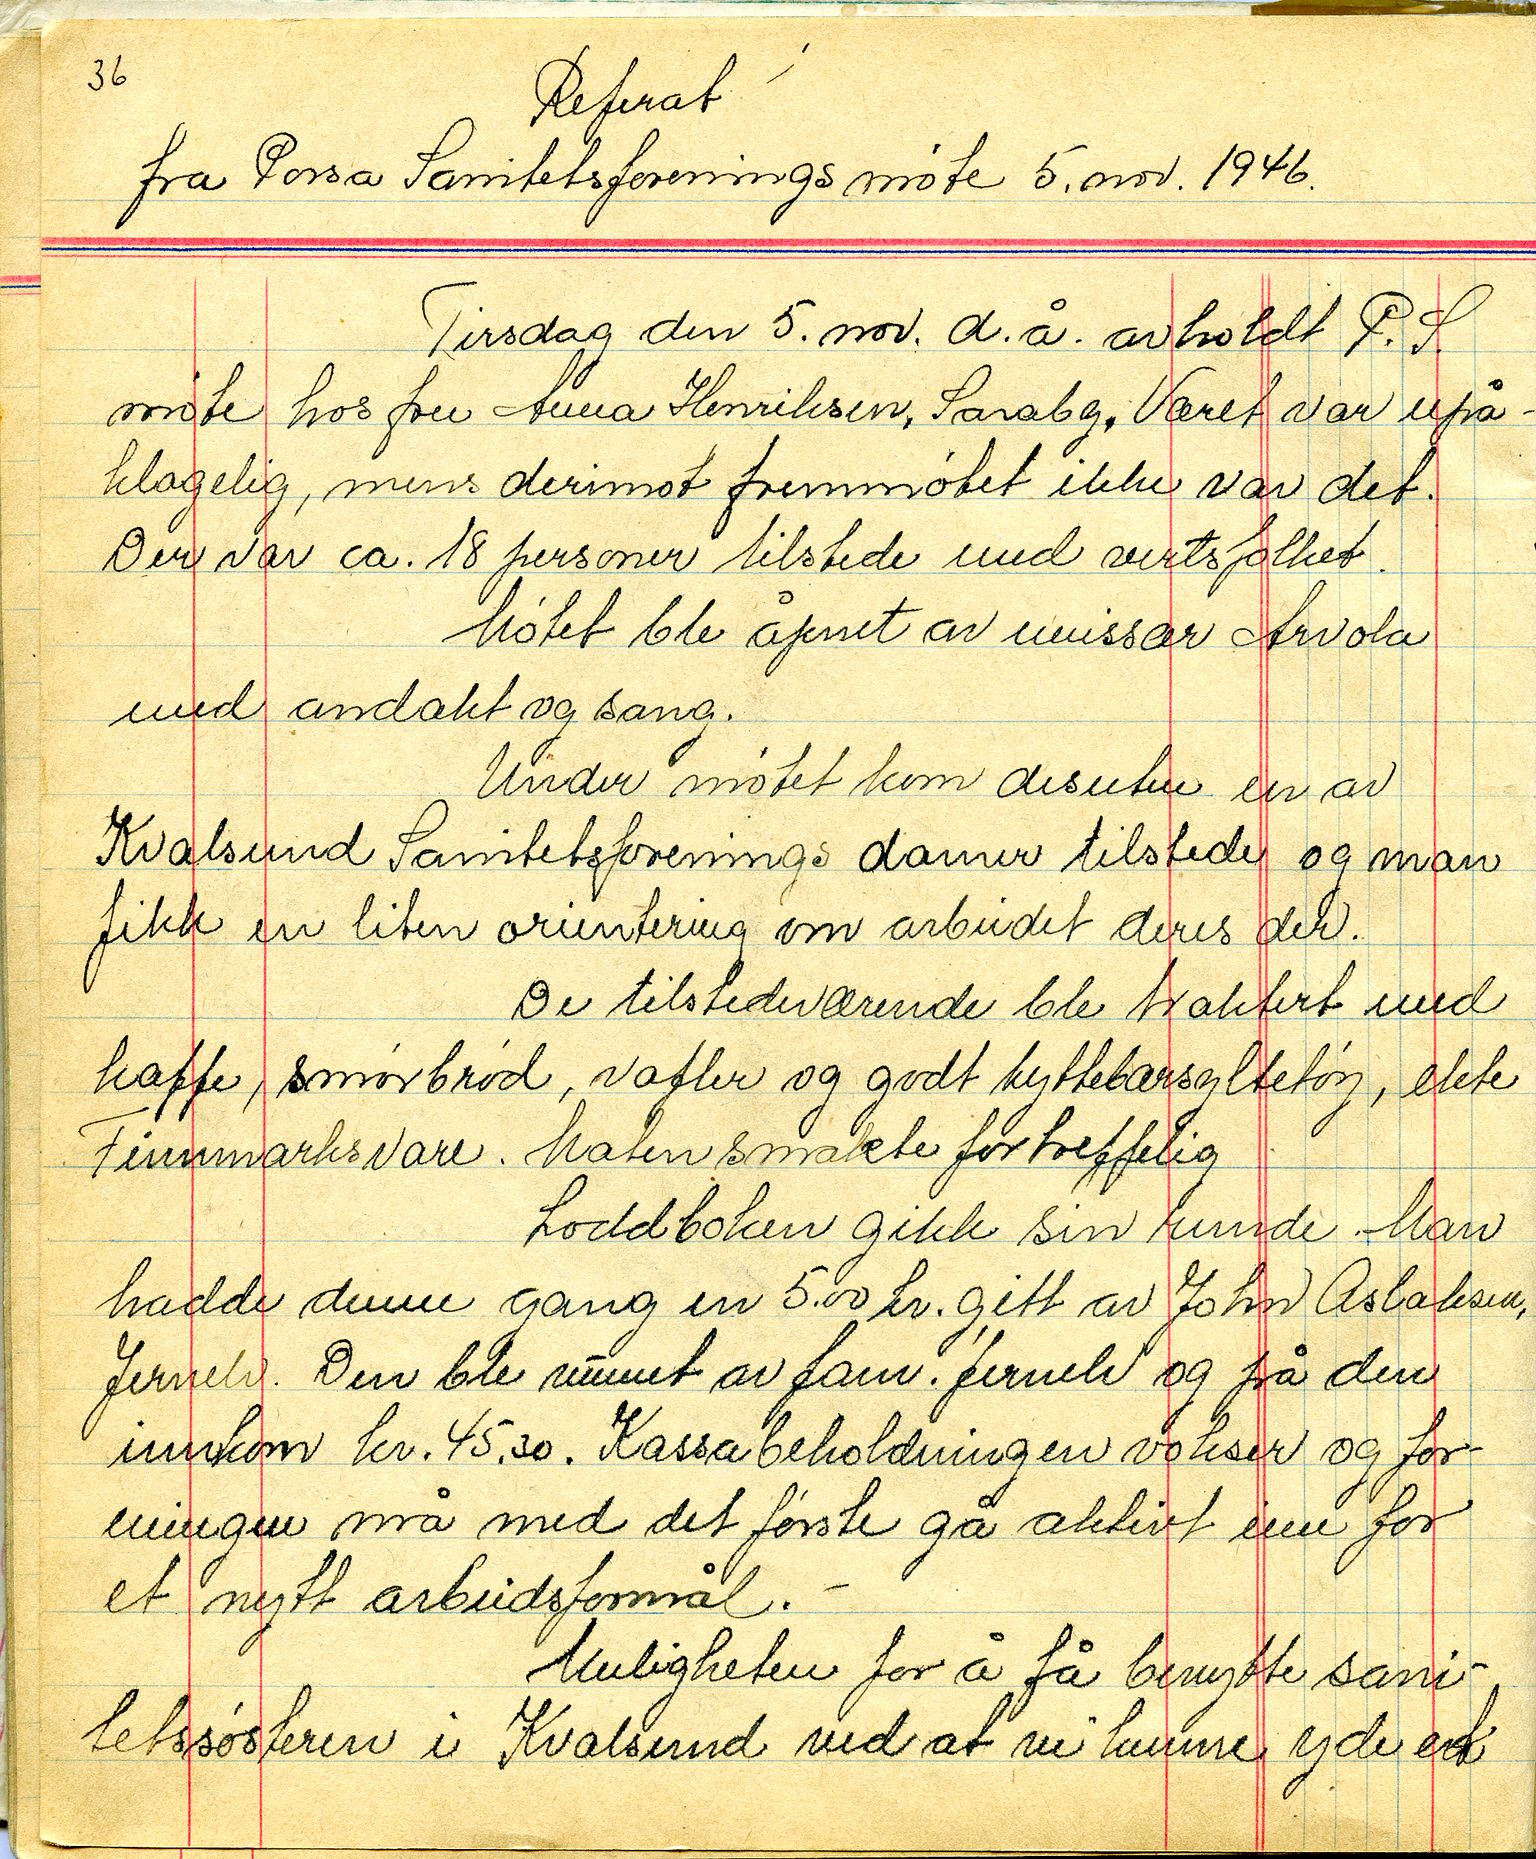 36
Referat
fra Porsa Sanitetsforenings møte 5. nov. 1946.
Tirsdag den 5. nov. d.å. avholdt P.S.
møte hos fru Anna Henriksen, Sarabg. Været var upå-
klagelig, mens derimot fremmøtet ikke var det.
Der var ca. 18 personer tilstede med vertsfolket.
Møtet ble åpnet av emissær Arvola
med andakt og sang.
Under møtet kom desuten en av
Kvalsund Sanitetsforenings damer tilstede og man
fikk en liten orientering om arbeidet deres der.
De tilstedeværende ble traktert med
kaffe, smørbrød, vafler og godt tyttebærsyltetøy, ekte
Finnmarksvare. Maten smakte fortreffelig
Loddboken gikk sin runde. Man
hadde denne gang en 5.00 kr. gitt av John Aslaksen,
Jernelv. Den ble vunnet av fam. Jernelv og på den
innkom kr. 45.30. Kassabeholdningen vokser og for-
eningen må med det første gå aktivt inn for
et nytt arbeidsformål. -
Muligheten for å få benytte sani-
tetssøsteren i Kvalsund ved at vi kunne yde et